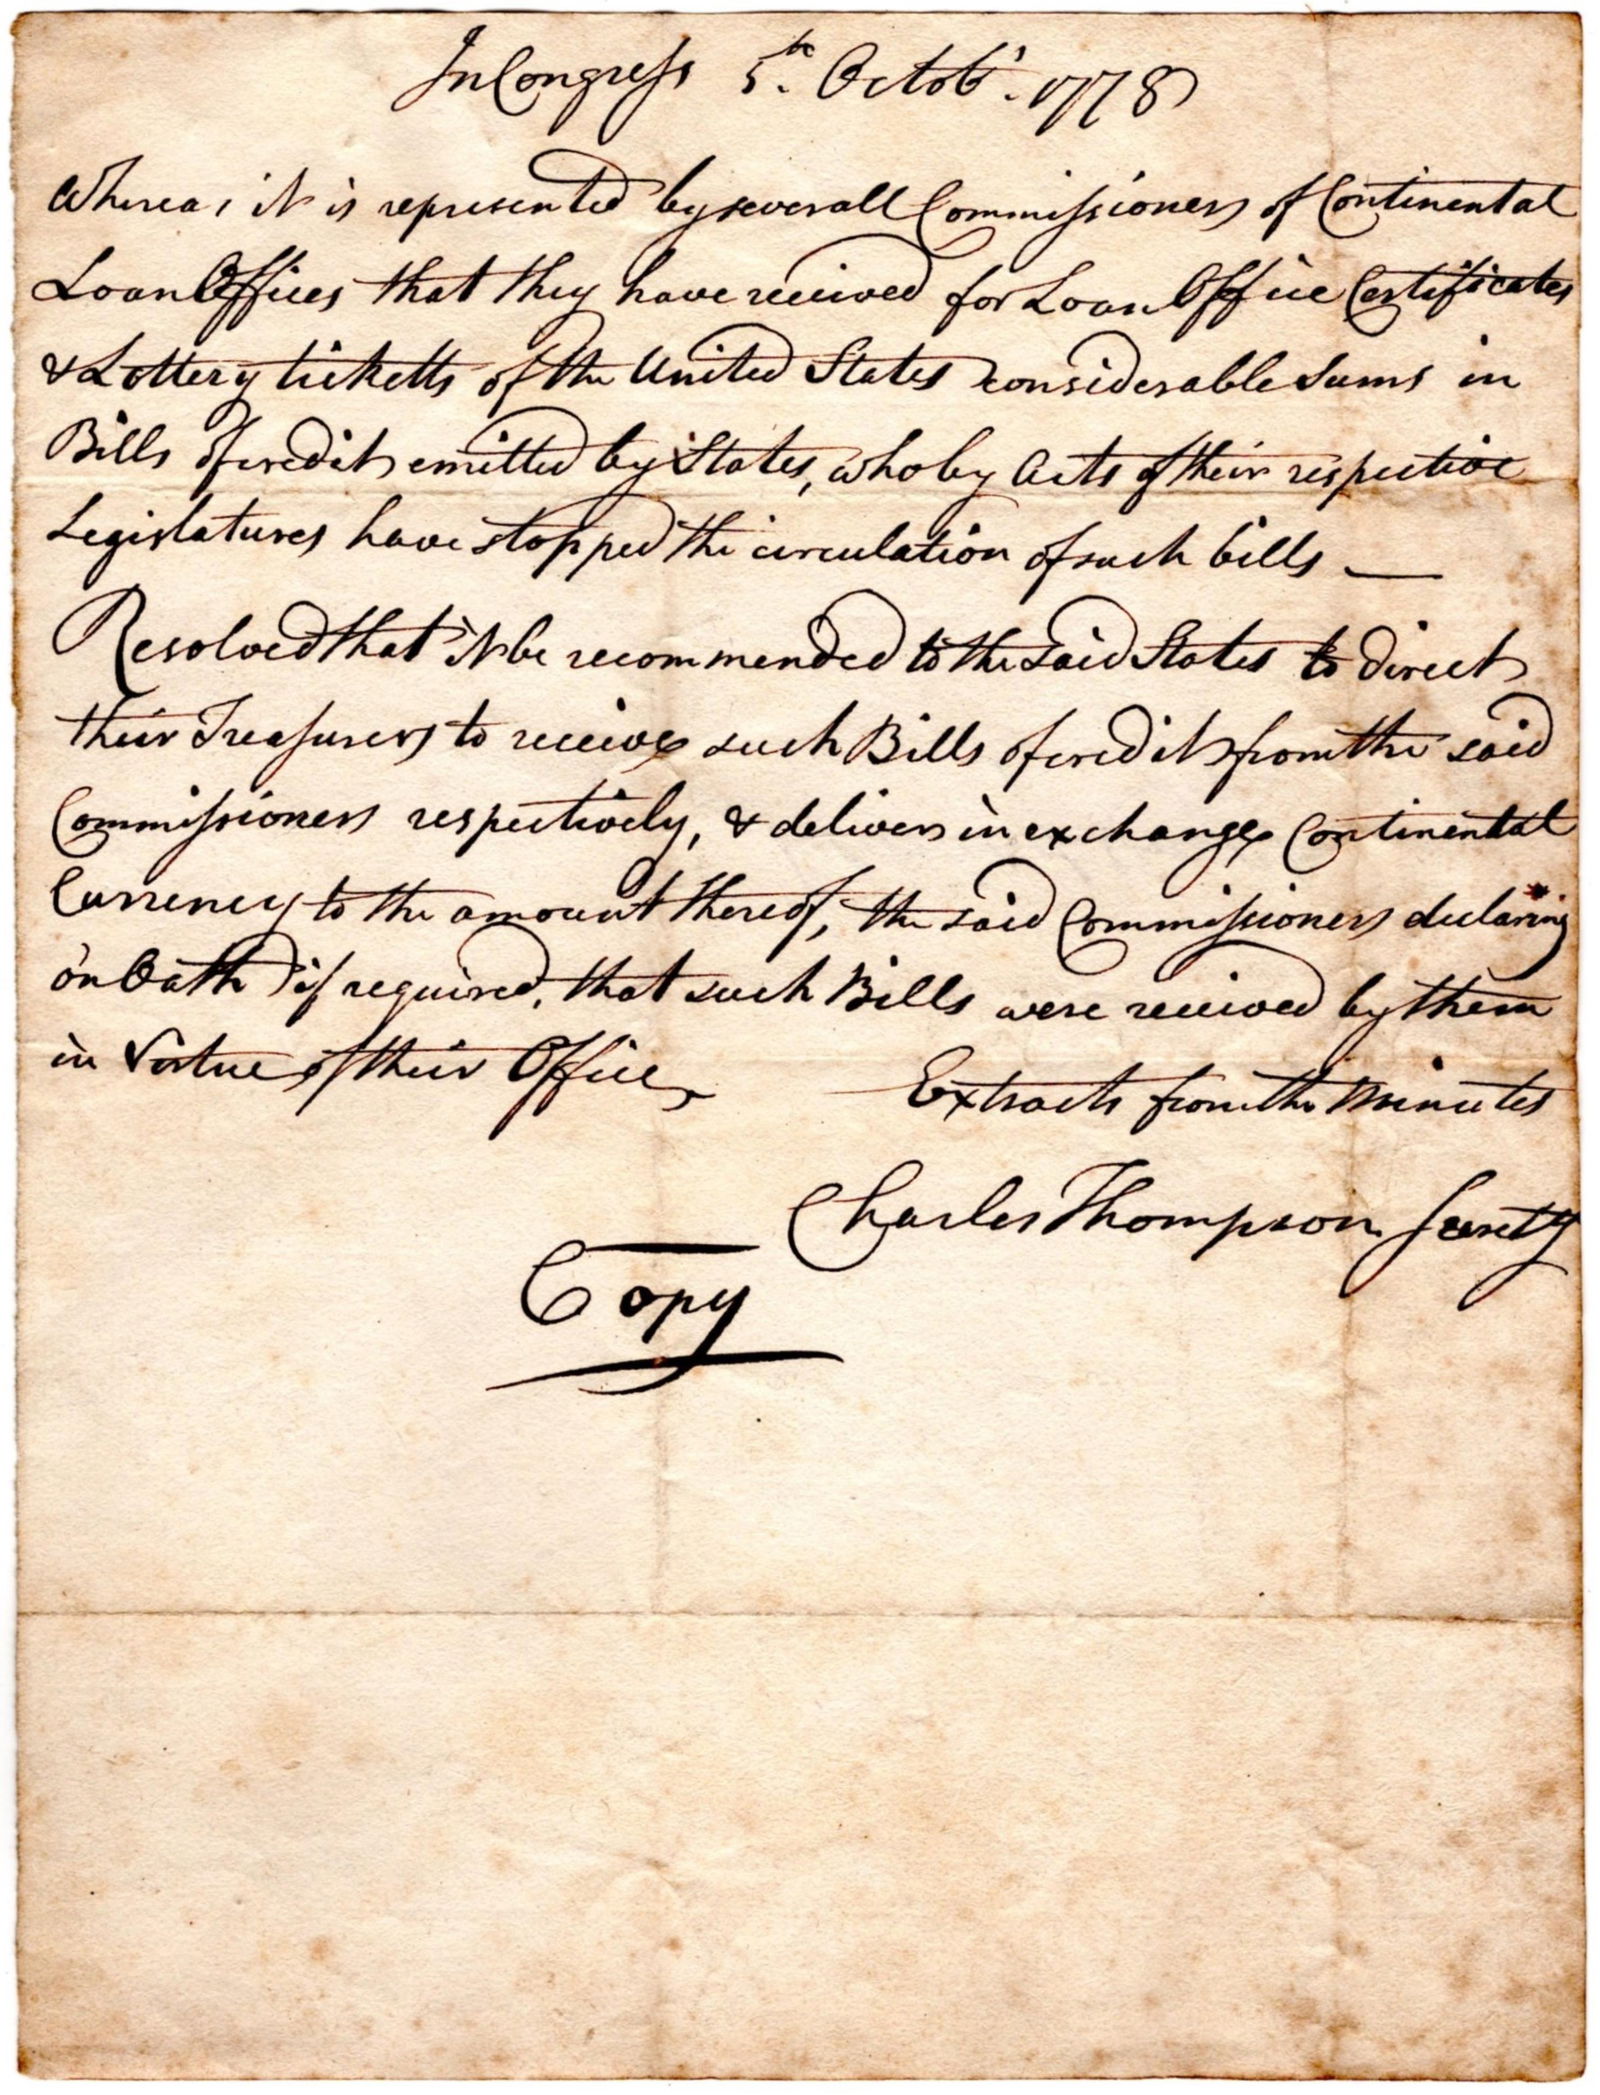 In Congress 5th Octobr. 1778
Whereas it is represented by severall Commissioners of Continental
Loan Offices that they have received for Loan Office Certificates
& Lottery ticketts of the United States considerable Sums in
Bills of credit emitted by States, who by Acts of their respective
Legislatures have stopped the circulation of such bills —
Resolved that it be recommended to the said States to direct
their Treasurers to receive such Bills of credit from the said
Commissioners respectively, & deliver in exchange Continental
Currency to the amount thereof, the said Commissioners declaring
on Oath if required, that such Bills were received by them
in Vertue of their Office
Extracts from the Minutes
Charles Thompson Secrety
Copy